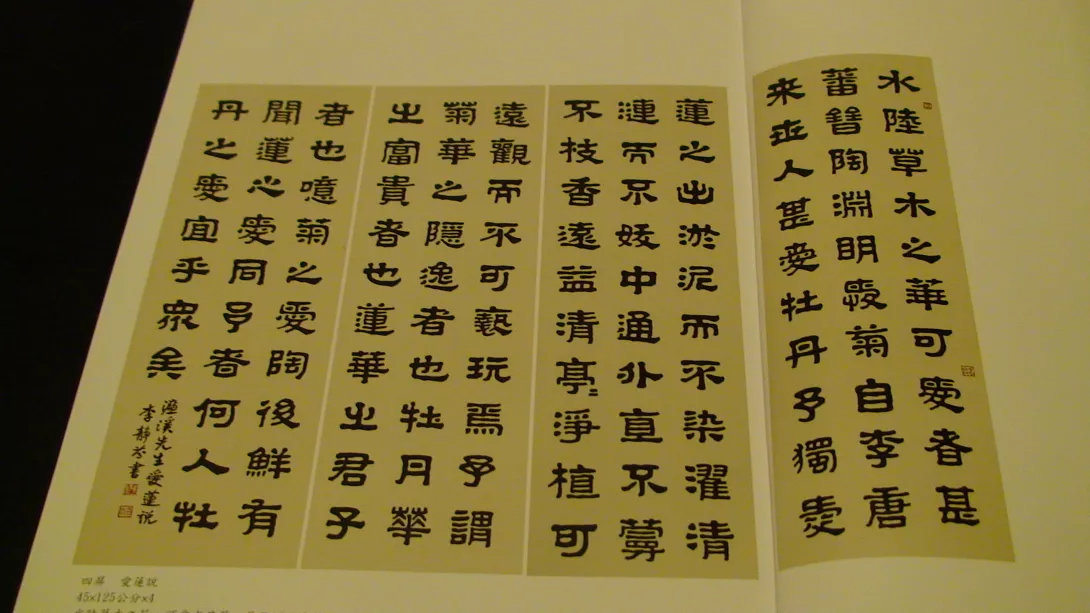 水陸草木之華可愛者甚
蕃晉陶淵明愛菊自李唐
来世人甚愛牡丹予獨愛
蓮之出淤泥而不染濯清
漣而不妖中通外直不蔓
不枝香遠益清亭〻淨植可
遠觀而不可褻玩焉予謂
菊華之隱逸者也牡丹華
之富貴者也蓮華之君子
者也噫菊之愛陶後鮮有
聞蓮之愛同予者何人牡
丹之愛宜乎眾矣
濂溪先生愛蓮説
李靜芬書
四屏 愛蓮説
45x125公分x4